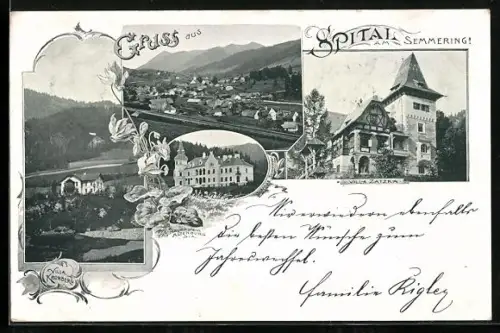 Gruss aus
Spital
am Semmering!
Villa Zatzka
Villa
Wir erwiedern ebenfalls
die besten Wünsche zum
Jahreswechsel.
Familie Rigley